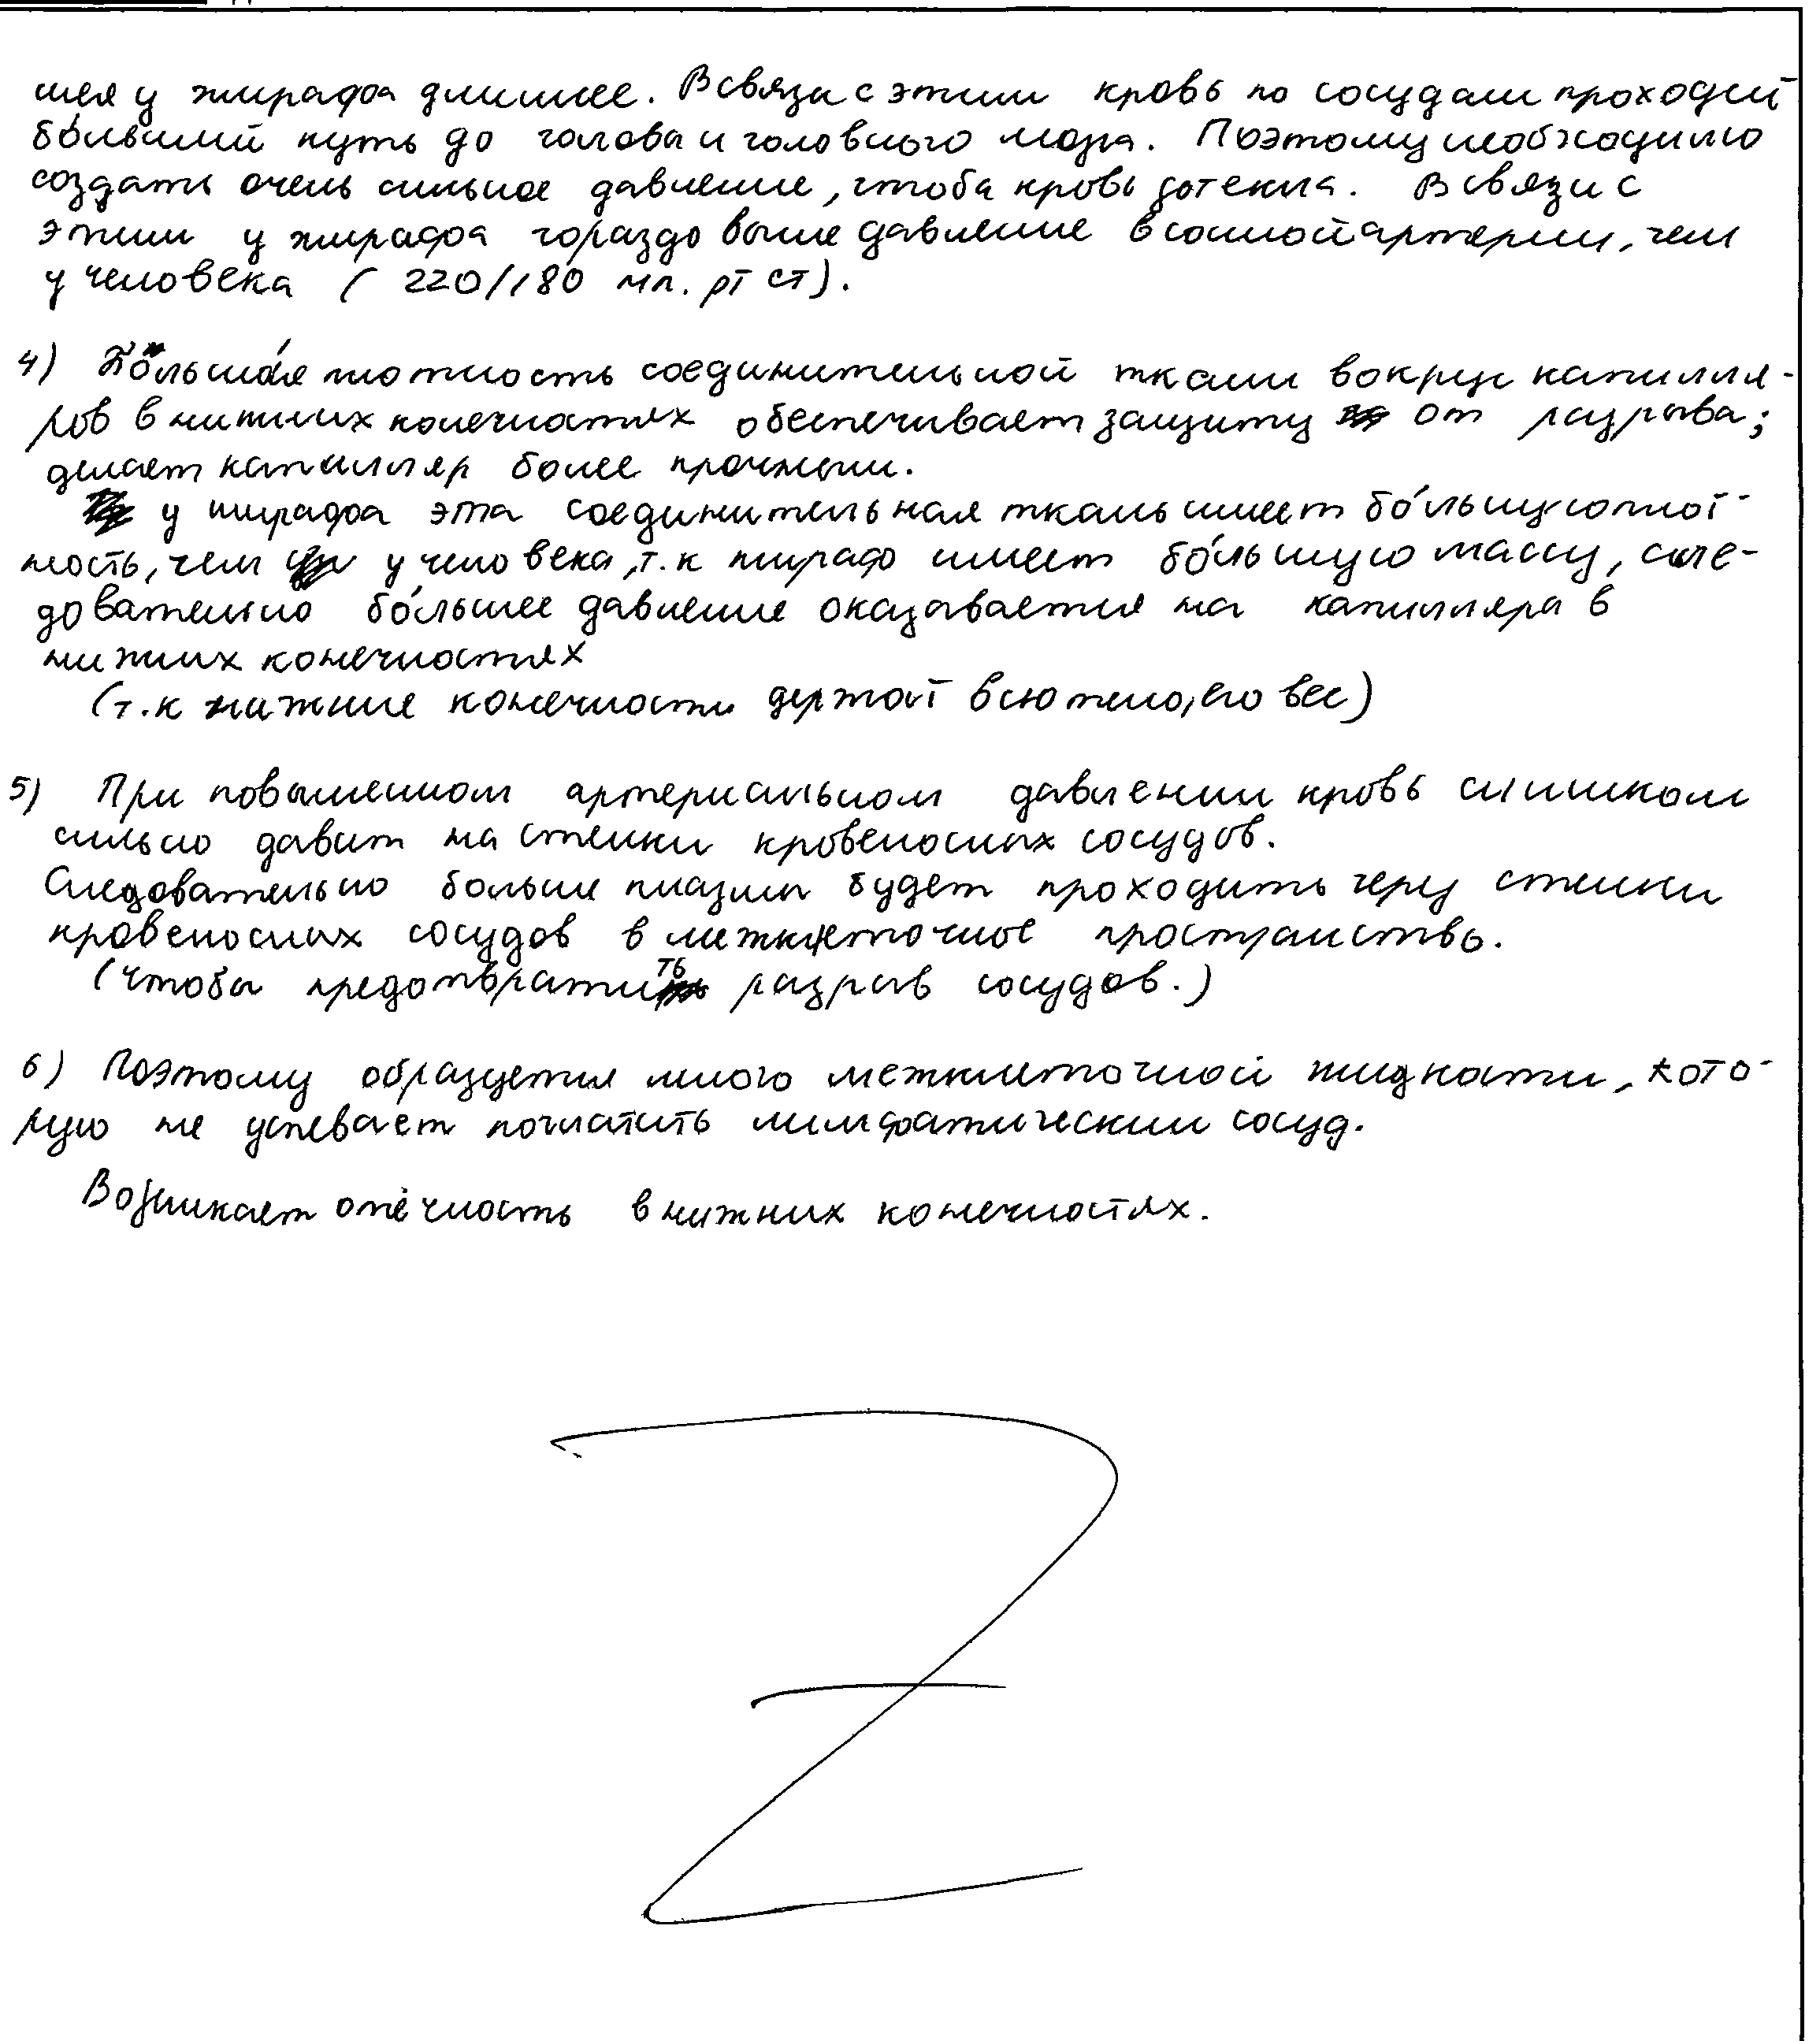 шея у жирафа длиннее. В связи с этим кровь по сосудам проходит
бо́льший путь до головы и головного мозга. Поэтому необходимо
создать очень сильное давление, чтобы кровь дотекла. В связи с
этим у жирафа гораздо выше давление в сонной артерии, чем
у человека ( 220/180 мл. рт ст).
4) Бо́льшая плотность соединительной ткани вокруг капилля-
ров в нижних конечностях обеспечивает защиту от разрыва;
делает капилляр более прочным.
у жирафа эта соединительная ткань имеет бо́льшую плот-
ность, чем у человека, т.к жираф имеет бо́льшую массу, сле-
довательно бо́льшее давление оказывается на капилляры в
нижних конечностях
(т.к нижние конечности держат всю тело, его вес)
5) При повышенном артериальном давлении кровь слишком
сильно давит на стенки кровеносных сосудов.
Следовательно больше плазмы будет проходить через стенки
кровеносных сосудов в межклеточное пространство.
(чтобы предотвратить разрыв сосудов.)
6) Поэтому образуется много межклеточной жидкости, кото-
рую не успевает поглатить лимфатический сосуд.
Возникает отёчность в нижних конечностях.
Z